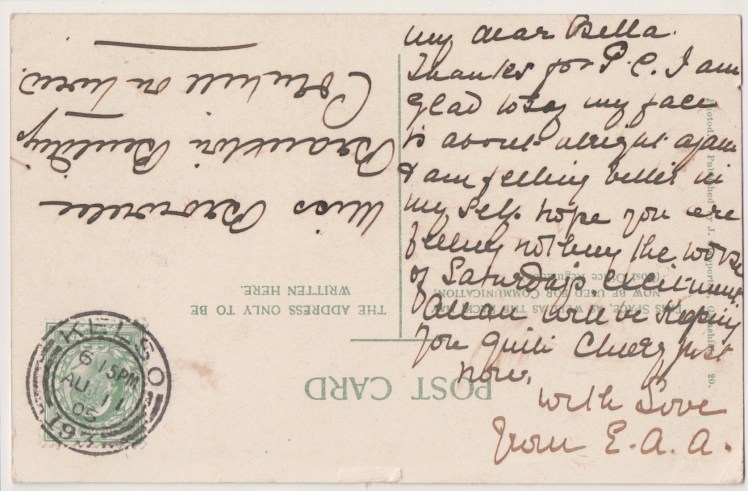 my dear Bella.
Thanks for P.C. I am
glad to say my face
is about alright again
& am feeling better in
my self. hope you are
feeling nothing the worse
of Saturday's excitement,
Allan will be keeping
you quite cheery just
now,
With Love
from E. A. A.
Miss Brownlee
Branxton Buildings
Cornhill on Tweed.
POST CARD
THE ADDRESS ONLY TO BE
WRITTEN HERE.
THIS SPACE, AS WELL AS THE BACK, MAY
NOW BE USED FOR COMMUNICATION.
(Post Office Regulation)
KELSO
6 15 PM
AU 11
05
193